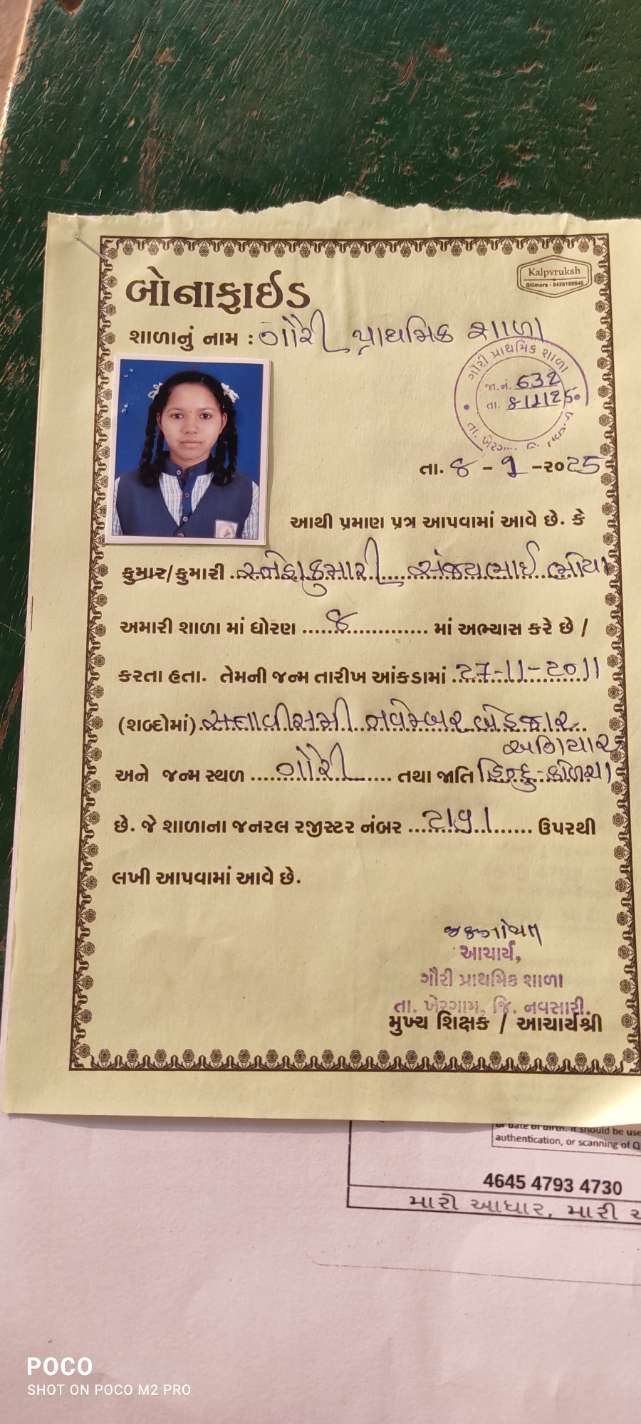 Kalpvruksh
બોનાફાઈડ
શાળાનું નામ : ગૌરી પ્રાથમિક શાળા
ગૌરી પ્રાથમિક શાળા
જા.નં. 632
તા. 8/1/25
તા. ૪ - ૧ -૨૦૨5
આથી પ્રમાણ પત્ર આપવામાં આવે છે. કે
કુમાર/કુમારી સ્નેહાકુમારી સંજયભાઈ ભોયા
અમારી શાળા માં ધોરણ ...૪... માં અભ્યાસ કરે છે /
કરતા હતા. તેમની જન્મ તારીખ આંકડામાં 27-11-2011
(શબ્દોમાં) સત્તાવીસમી નવેમ્બર બેહજાર
અગિયાર
અને જન્મ સ્થળ ...ગૌરી... તથા જાતિ હિન્દુ-
છે. જે શાળાના જનરલ રજીસ્ટર નંબર ...... ઉપરથી
લખી આપવામાં આવે છે.
આચાર્ય,
ગૌરી પ્રાથમિક શાળા
તા. ખેરગામ, જિ. નવસારી.
મુખ્ય શિક્ષક / આચાર્યશ્રી
authentication, or scanning of
4645 4793 4730
મારો આધાર, મારી
POCO
SHOT ON POCO M2 PRO